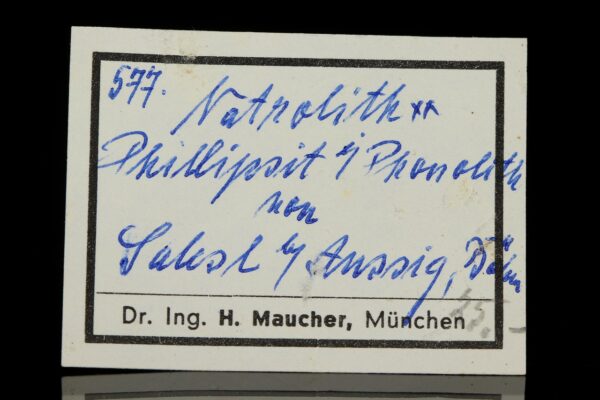 577.
Natrolith xx
Phillipsit i/ Phonolith
von
Salesl b/ Aussig, Böhm
25.-
Dr. Ing. H. Maucher, München